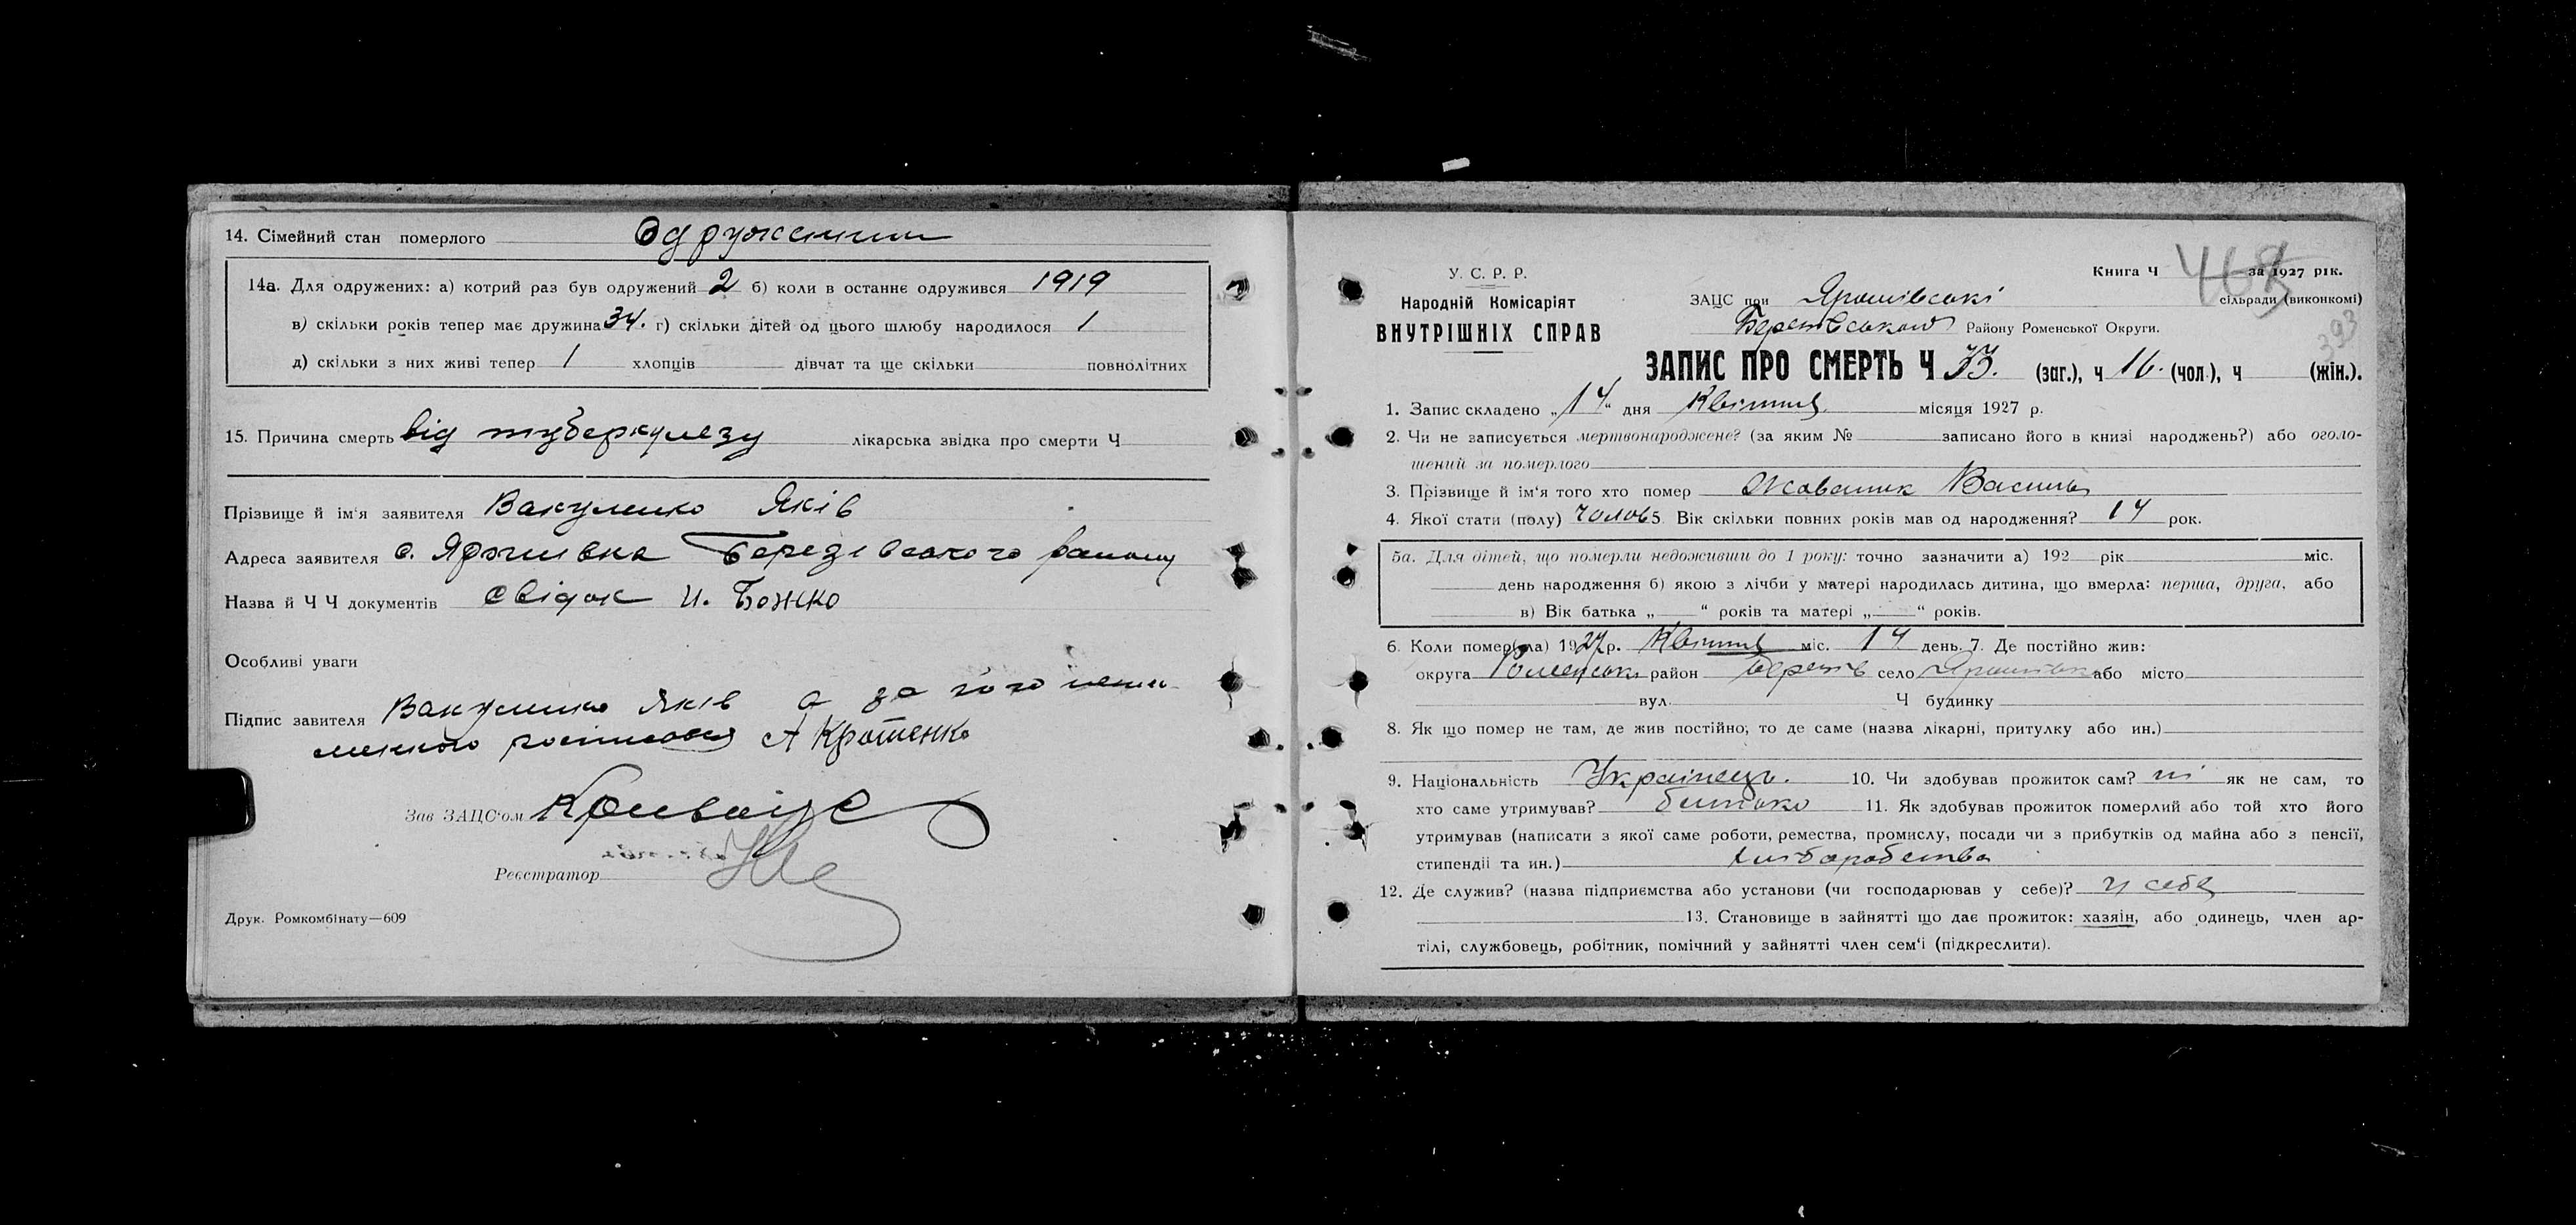 14. Сімейний стан померлого Одружений
14а. Для одружених: а) котрий раз був одружений 2 б) коли в останнє одружився 1919
в) скільки років тепер має дружина 34. г) скільки дітей од цього шлюбу народилося 1
д) скільки з них живі тепер 1 хлопців дівчат та ще скільки повнолітних
15. Причина смерть від туберкулезу лікарська звідка про смерти Ч
Прізвище й ім'я заявителя Вакуленко Яків
Адреса заявителя с. Ярошівка Березівського району
Назва й Ч Ч документів свідок И. Божко
Особливі уваги
Підпис завителя Вакуленко Яків а за його непи-
сменного росписався А Кротенко
Зав ЗАЦС'ом
Реєстратор
Друк. Ромкомбінату—609
У. С. Р. Р.
Народній Комісаріят
ВНУТРІШНІХ СПРАВ
Книга Ч за 1927 рік.
393
ЗАЦС при Ярошівські сільради (виконкомі)
Березівського Району Роменської Округи.
ЗАПИС ПРО СМЕРТЬ Ч 33. (заг.), ч 16. (чол.), ч (жін.).
1. Запис складено „14“ дня Квітня місяця 1927 р.
2. Чи не записується мертвонароджене? (за яким № записано його в книзі народжень?) або оголо-
шений за померлого
3. Прізвище й ім'я того хто помер Василь
4. Якої стати (полу) чолов 5. Вік скільки повних років мав од народження? 14 рок.
5а. Для дітей, що померли недоживши до 1 року: точно зазначити а) 192 рік міс.
день народження б) якою з лічби у матері народилась дитина, що вмерла: перша, друга, або
в) Вік батька „ “ років та матері „ “ років.
6. Коли помер(ла) 1927 р. Квітня міс. 14 день. 7. Де постійно жив:
округа Роменська район Березів село Ярошівка або місто
вул. Ч будинку
8. Як що помер не там, де жив постійно, то де саме (назва лікарні, притулку або ин.)
9. Національність Українець. 10. Чи здобував прожиток сам? ні як не сам, то
хто саме утримував? батько 11. Як здобував прожиток померлий або той хто його
утримував (написати з якої саме роботи, ремества, промислу, посади чи з прибутків од майна або з пенсії,
стипендії та ин.) хліборобства
12. Де служив? (назва підприємства або установи (чи господарював у себе)? у себе
13. Становище в зайнятті що дає прожиток: хазяїн, або одинець, член ар-
тілі, службовець, робітник, помічний у зайнятті член сем'ї (підкреслити).